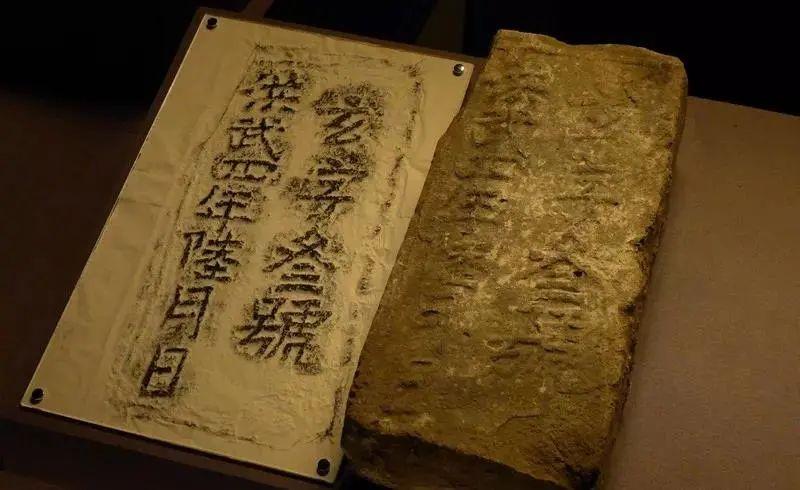 玄字叁號
洪武四年陸月日